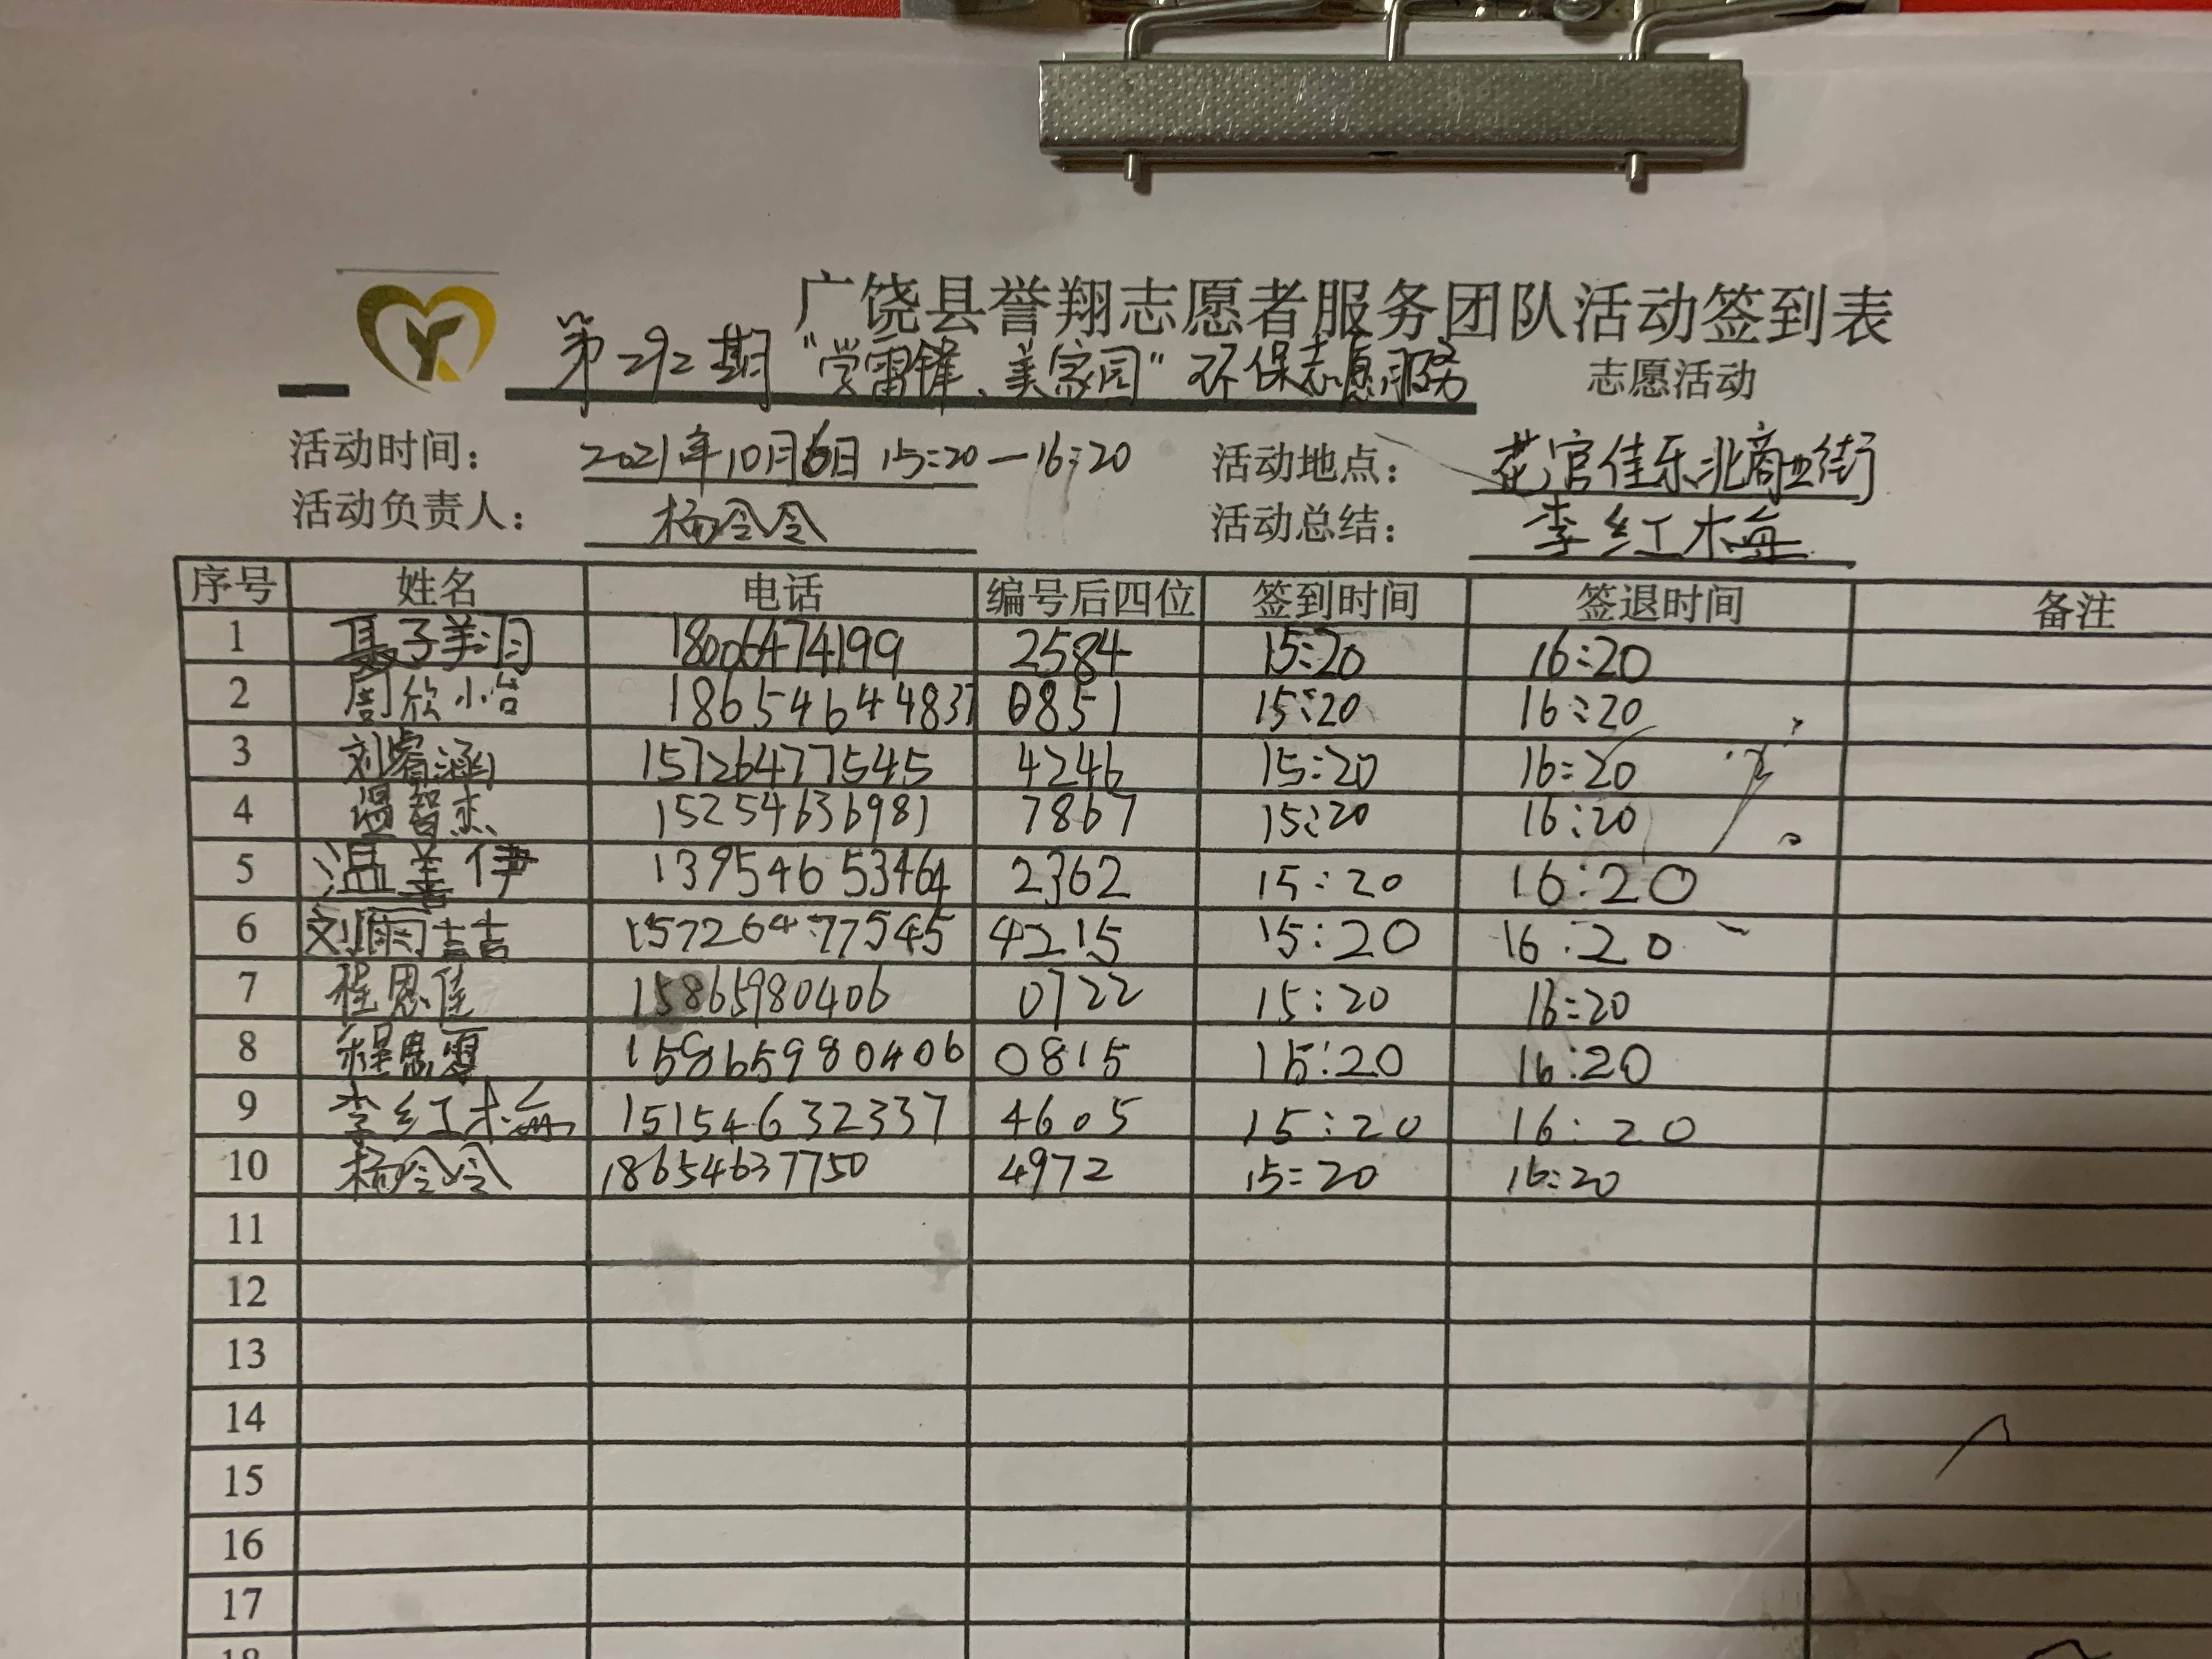 广饶县誉翔志愿者服务团队活动签到表
第292期"学雷锋、美家园"环保志愿服务 志愿活动
活动时间： 2021年10月6日 15:20—16:20 活动地点： 花官佳乐北商业街
活动负责人： 杨令令 活动总结： 李红梅
序号 姓名 电话 编号后四位 签到时间 签退时间 备注
1 聂子美汩 18006474199 2584 15:20 16:20
2 周欣怡 0851 15:20 16:20
3 刘睿涵 15726477545 4246 15:20 16:20
4 温智杰 15254636981 7867 15:20 16:20
5 温善伊 13954653464 2362 15:20 16:20
6 刘雨喆 15726477545 4215 15:20 16:20
7 程思佳 15865980406 0722 15:20 16:20
8 程思雯 15865980406 0815 15:20 16:20
9 李红梅 15154632337 4605 15:20 16:20
10 杨令令 18654637750 4972 15:20 16:20
11
12
13
14
15
16
17
18